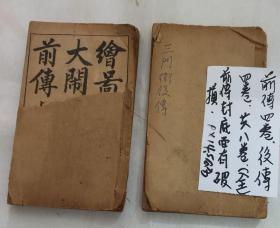 繪圖
大鬧
前傳
三門街後傳
前傳四卷，後傳
四卷，共八卷（全）
前傳封底面有破
損，